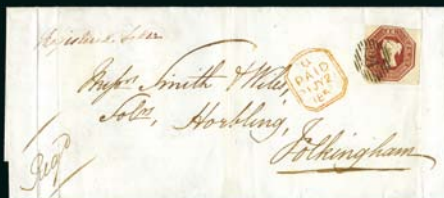 Registered Letter
G
PAID
Messrs Smith & Wiles,
Solrs, Horbling,
Folkingham
Regd